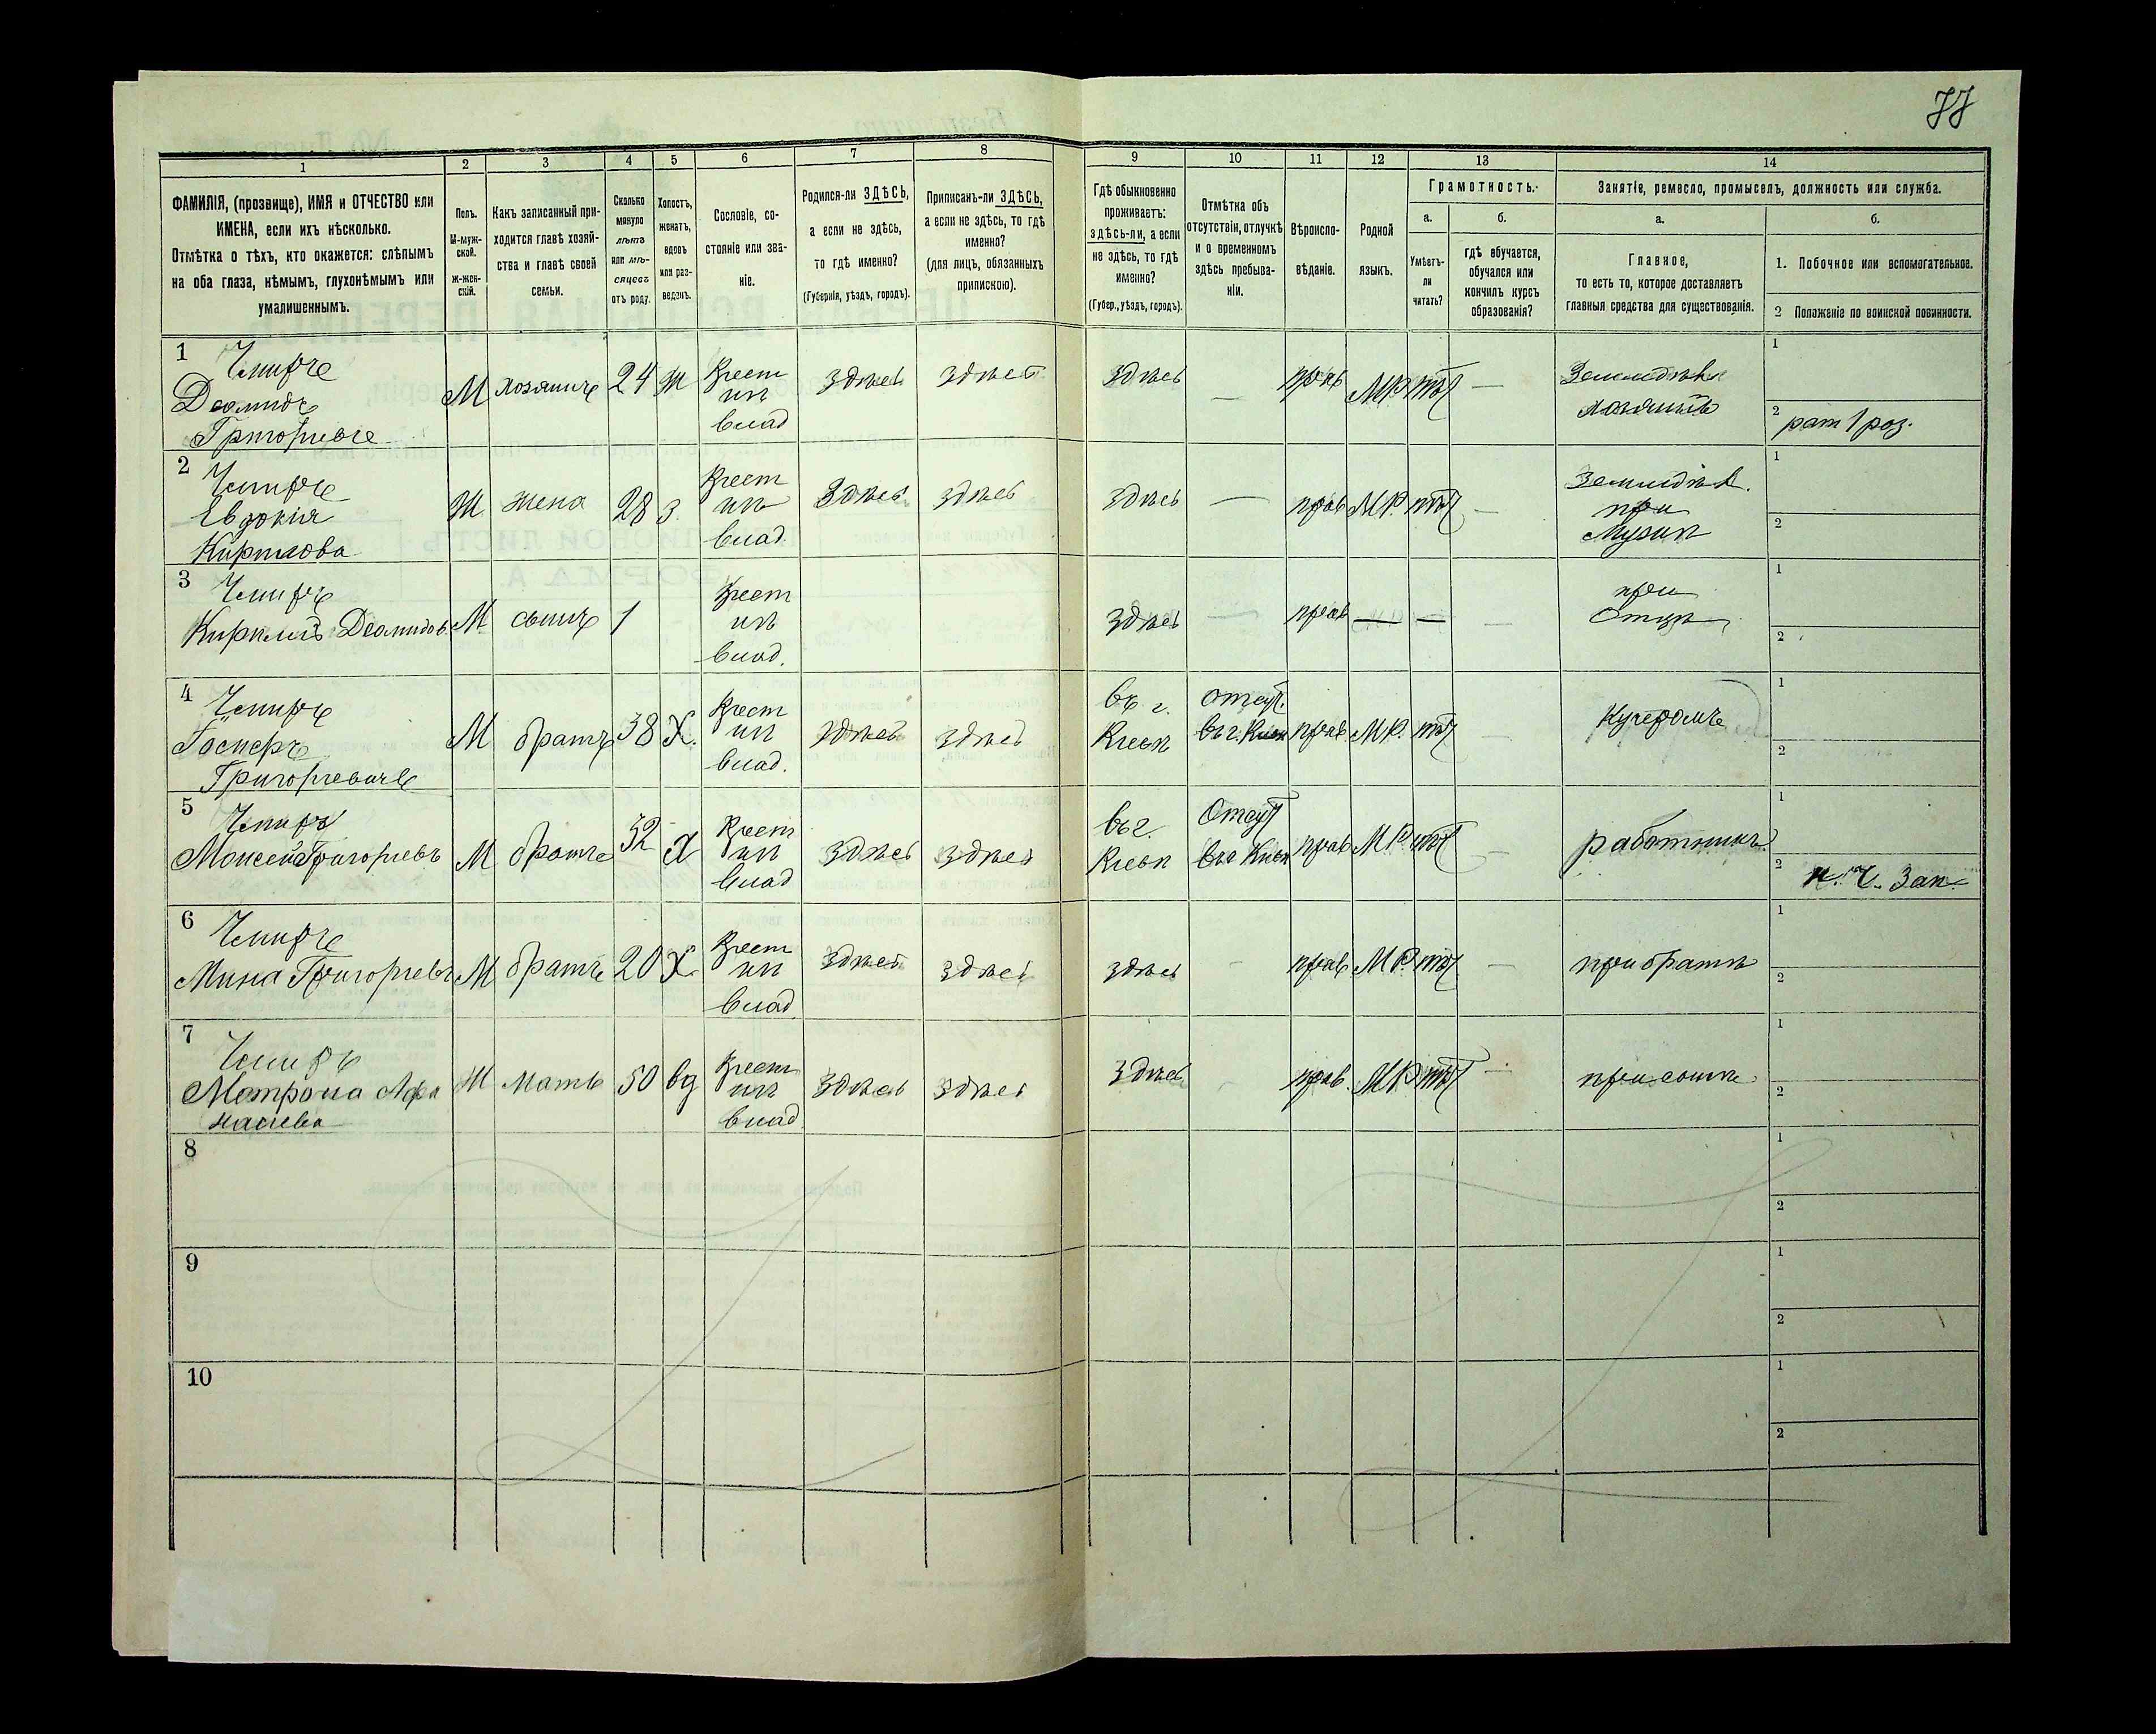 77
1 2 3 4 5 6 7 8 9 10 11 12 13 14
ФАМИЛІЯ, (прозвище), ИМЯ и ОТЧЕСТВО или ИМЕНА, если ихъ нѣсколько.
Отмѣтка о тѣхъ, кто окажется: слѣпымъ на оба глаза, нѣмымъ, глухонѣмымъ или умалишеннымъ.
Полъ.
М-муж-
ской.
Ж-жен-
скій.
Какъ записанный при-
ходится главѣ хозяй-
ства и главѣ своей
семьи.
Сколько
минуло
лѣтъ
или мѣ-
сяцевъ
отъ роду.
Холостъ,
женатъ,
вдовъ
или раз-
веденъ.
Сословіе, со-
стояніе или зва-
ніе.
Родился-ли ЗДѢСЬ,
а если не здѣсь,
то гдѣ именно?
(Губернія, уѣздъ, городъ).
Приписанъ-ли ЗДѢСЬ,
а если не здѣсь, то гдѣ
именно?
(для лицъ, обязанныхъ
припискою).
Гдѣ обыкновенно
проживаетъ:
здѣсь-ли, а если
не здѣсь, то гдѣ
именно?
(Губер., уѣздъ, городъ).
Отмѣтка объ
отсутствіи, отлучкѣ
и о временномъ
здѣсь пребыва-
ніи.
Вѣроиспо-
вѣданіе.
Родной
языкъ.
Грамотность.
а.
Умѣетъ-
ли
читать?
б.
гдѣ обучается,
обучался или
кончилъ курсъ
образованія?
Занятіе, ремесло, промыселъ, должность или служба.
а.
Главное,
то есть то, которое доставляетъ
главныя средства для существованія.
б.
1. Побочное или вспомогательное.
2 Положеніе по воинской повинности.
1 Чмиръ
Деомидъ
Григорьевъ
М хозяинъ 24 ж Крест
изъ
влад
здѣсь здѣсь здѣсь — прав М.Р. нѣт —
Земледѣл
хозяинъ
1
2 рат 1 раз.
2 Чмиръ
Евдокія
Кирилова
Ж жена 28 з. Крест
изъ
влад.
здѣсь здѣсь здѣсь — прав М.Р. нѣт —
Земледѣл.
при
мужѣ
1
2
3 Чмиръ
Кирилъ Деомидов.
М. сынъ 1 Крест
изъ
влад.
здѣсь — прав — — —
при
Отцѣ
1
2
4 Чмиръ
Григорьевичъ
М братъ 38 Х. Крест
изъ
влад.
здѣсь здѣсь
въ г.
Кіевѣ
отсут.
въ г. Кіевѣ
прав. М.Р. нѣт —
Кучеромъ
1
2
5 Чмиръ
Моисей Григорьевъ
М братъ 32 Х Крест
изъ
влад
здѣсь здѣсь
въ г.
Кіевѣ
Отсут
въ г. Кіевѣ
прав М.Р. нѣт —
работникъ
1
2 Н. Ч. Зап.
6 Чмиръ
Мина Григорьевъ
М братъ 20 Х Крест
изъ
влад.
здѣсь здѣсь здѣсь — прав М.Р. нѣт —
при братѣ
1
2
7 Чмиръ
Матрона Афа
насиева
Ж мать 50 вд Крест
изъ
влад
здѣсь здѣсь здѣсь — прав. М.Р. нѣт —
при сынѣ
1
2
8
1
2
9
1
2
10
1
2